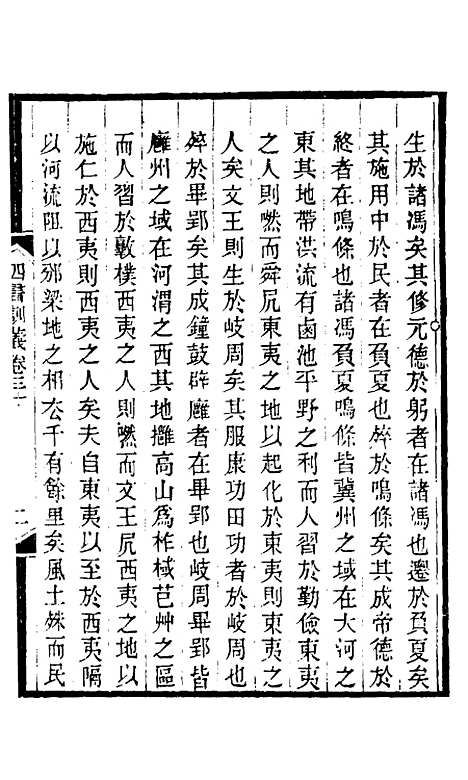 生於諸馮矣其修元德於躬者在諸馮也遷於負夏矣
其施用中於民者在負夏也卒於鳴條矣其成帝德於
終者在鳴條也諸馮負夏鳴條皆冀州之域在大河之
東其地帶洪流有鹵池平野之利而人習於勤儉東夷
之人則然而舜凥東夷之地以起化於東夷則東夷之
人矣文王則生於岐周矣其服康功田功者於岐周也
卒於畢郢矣其成鐘鼓辟廱者在畢郢也岐周畢郢皆
雝州之域在河渭之西其地擁高山爲柞棫芑艸之區
而人習於敦樸西夷之人則然而文王凥西夷之地以
施仁於西夷則西夷之人矣夫自東夷以至於西夷隔
以河流阻以邠梁地之相厺千有餘里矣風土殊而民
四書訓義卷三十 二